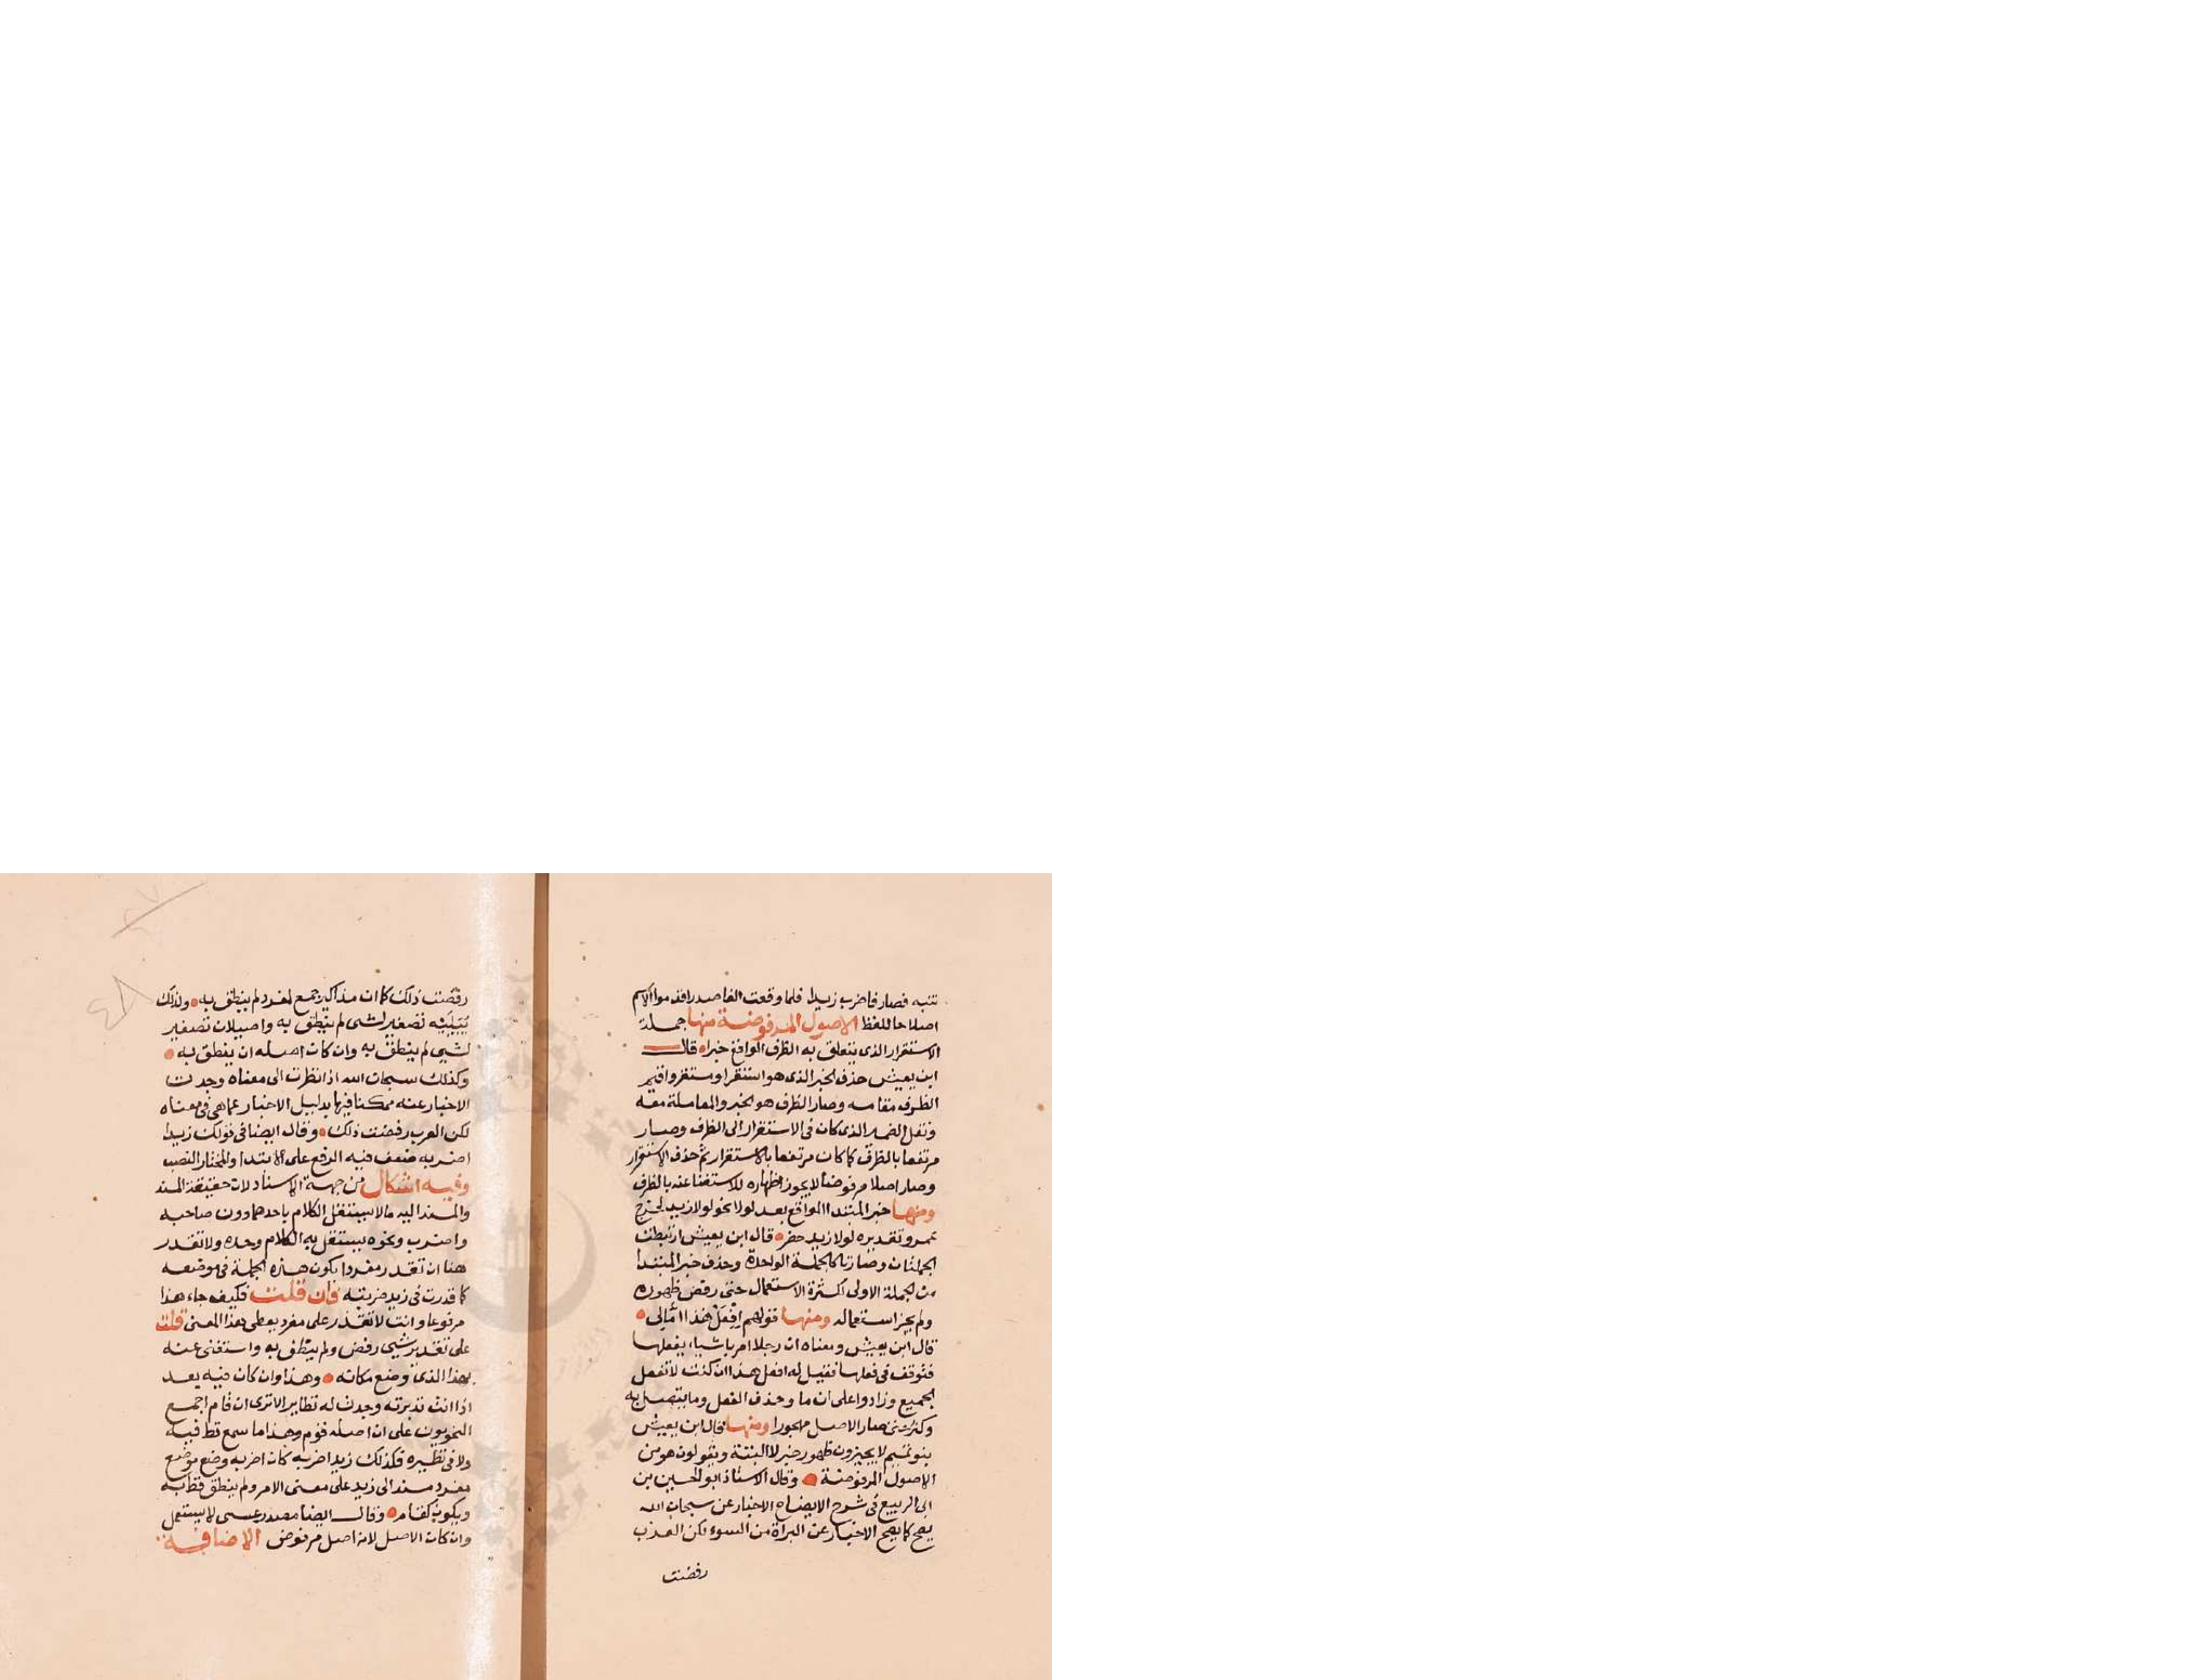 تنبه فصار فاضرب زيدا فلما وقعت الفا صدرا قدموا الاسم
اصلاحا للفظ الاصول المرفوضة منها جملة
الاستقرار الذى يتعلق به الظرف الواقع خبرا قال
ابن يعيش حذف الخبر الذى هو استقر او مستقر واقيم
الظرف مقامه وصار الظرف هو الخبر والمعاملة معه
ونقل الضمير الذى كان فى الاستقرار الى الظرف وصار
مرتفعا بالظرف كما كان مرتفعا بالاستقرار ثم حذف الاستقرار
وصار اصلا مرفوضا لا يجوز اظهاره للاستغنا عنه بالظرف
ومنها خبر المبتدا الواقع بعد لولا نحو لولا زيد لخرج
عمرو تقديره لولا زيد حضر قال ابن يعيش ارتبطت
الجملتان وصارتا كالجملة الواحدة وحذف خبر المبتدا
من الجملة الاولى لكثرة الاستعمال حتى رفض ظهوره
ولم يجز استعماله ومنها قولهم افعل هذا امالى
قال ابن يعيش ومعناه ان رجلا امر باشياء يفعلها
فتوقف فى فعلها فقيل له افعل هذا ان كنت لا تفعل
الجميع وزادوا على ان ما وحذف الفعل وما يتصل به
وكثر حتى صار الاصل مهجورا ومنها قال ابن يعيش
بنو تميم لا يجيزون ظهور خبر لا البتة ويقولون هو من
الاصول المرفوضة وقال الاستاذ ابو الحسين بن
ابى الربيع فى شرح الايضاح الاخبار عن سبحان الله
يصح كما يصح الاخبار عن البراة من السوء لكن العرب
رفضت
رفضت ذلك كما ان مذاكير جمع لمفرد لم ينطق به ولذلك
لييلية تصغير لشى لم ينطق به واصيلان تصغير
لشى لم ينطق به وان كان اصله ان ينطق به
وكذلك سبحان الله اذا نظرت الى معناه وجدت
الاخبار عنه ممكنا فيها بدليل الاخبار عما هى فى معناه
لكن العرب رفضت ذلك وقال ايضا فى قولك زيدا
اضربه ضعف فيه الرفع على الابتدا والمختار النصب
وفيه اشكال من جهة الاسناد لان حقيقة المسند
والمسند اليه ما لا يستقل الكلام باحدهما دون صاحبه
واضرب ونحوه يستقل به الكلام وحده ولا تقدر
هنا ان تقدر مفردا تكون هذه الجملة فى موضعه
كما قدرت فى زيد ضربته فان قلت فكيف جاء هذا
مرفوعا وانت لا تقدر على مفرد يعطى هذا المعنى قلت
على تقدير شى رفض ولم ينطق به واستغنى عنه
بهذا الذى وضع مكانه وهذا وان كان فيه بعد
اذا انت تدبرته وجدت له نظاير الا ترى ان قام اجمع
النحويون على ان اصله قوم وهذا ما سمع قط فيه
ولا فى نظيره فكذلك زيد اضربه كان اضربه وضع موضع
مفرد مسند الى زيد على معنى الامر ولم ينطق قط به
ويكون كقام وقال ايضا مصدر عسى لا يستعمل
وان كان الاصل لانه اصل مرفوض الاضافة
٤٨